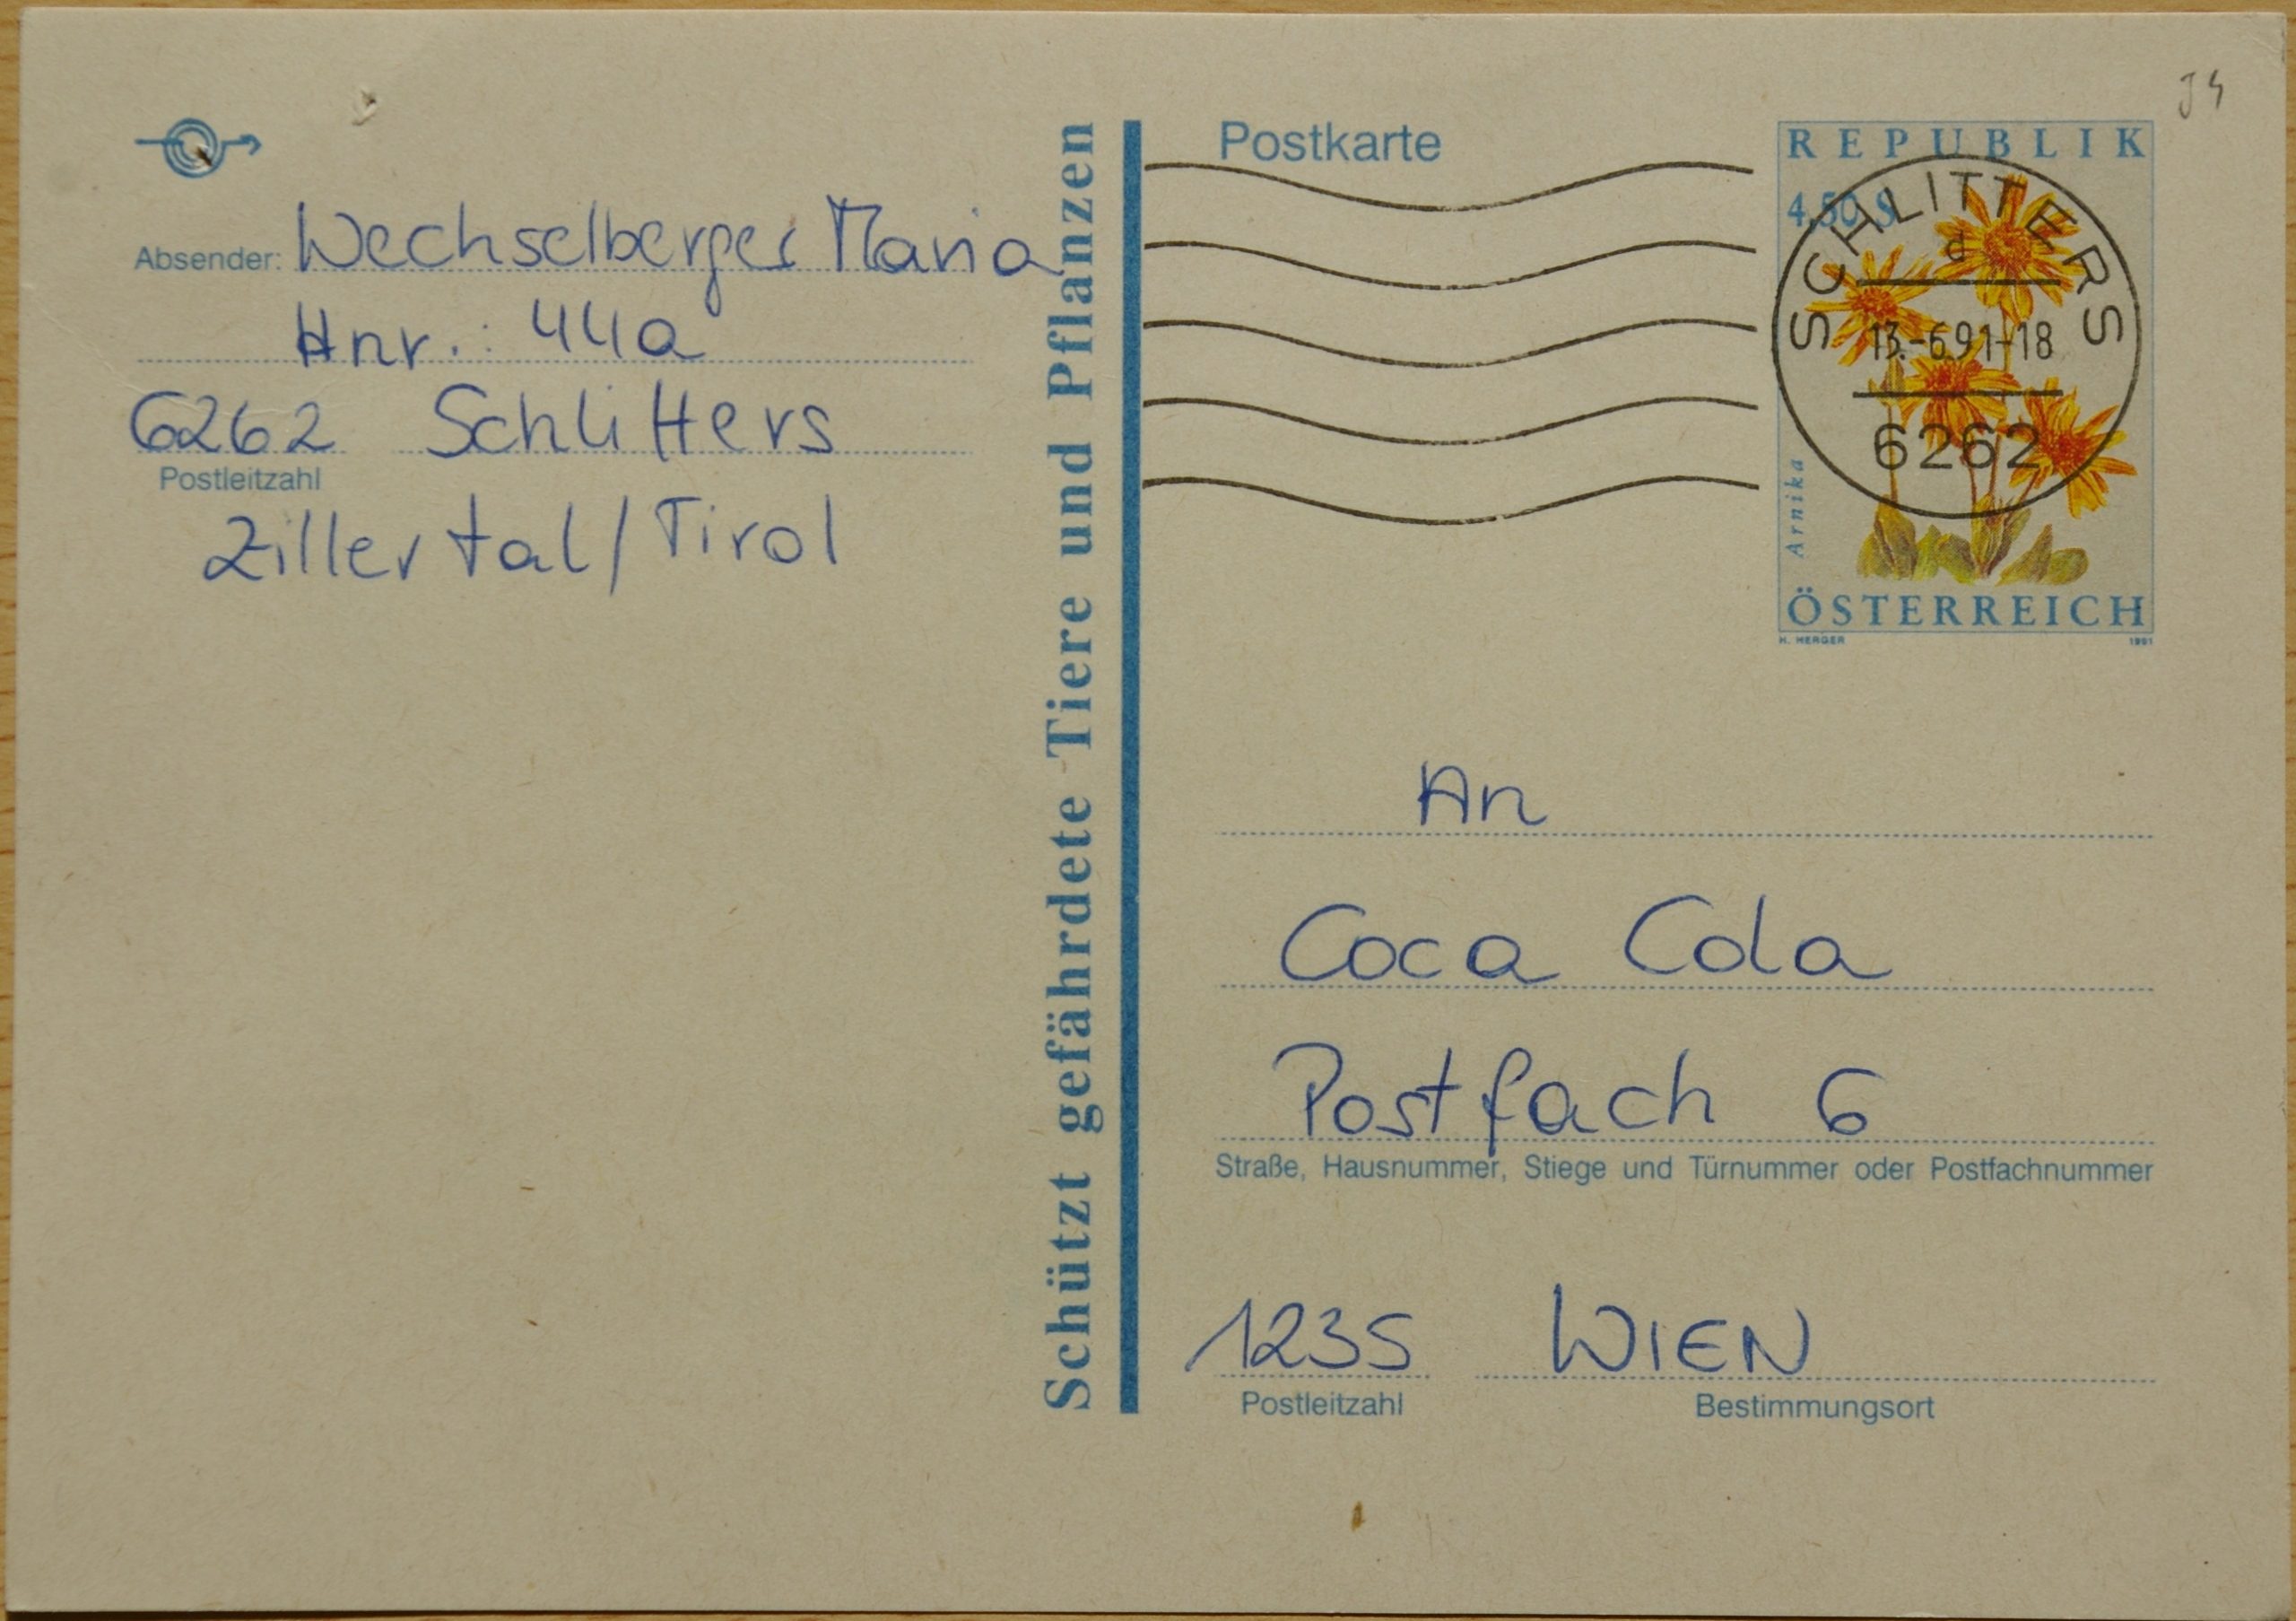 Absender: Wechselberger Maria
Hnr.: 44a
6262 Schlitters
Postleitzahl
Zillertal/Tirol
Schützt gefährdete Tiere und Pflanzen
Postkarte
REPUBLIK
4,50 S
SCHLITTERS
d
13.-6.91-18
6262
Arnika
ÖSTERREICH
H. HERGER 1991
An
Coca Cola
Postfach 6
Straße, Hausnummer, Stiege und Türnummer oder Postfachnummer
1235 WIEN
Postleitzahl Bestimmungsort